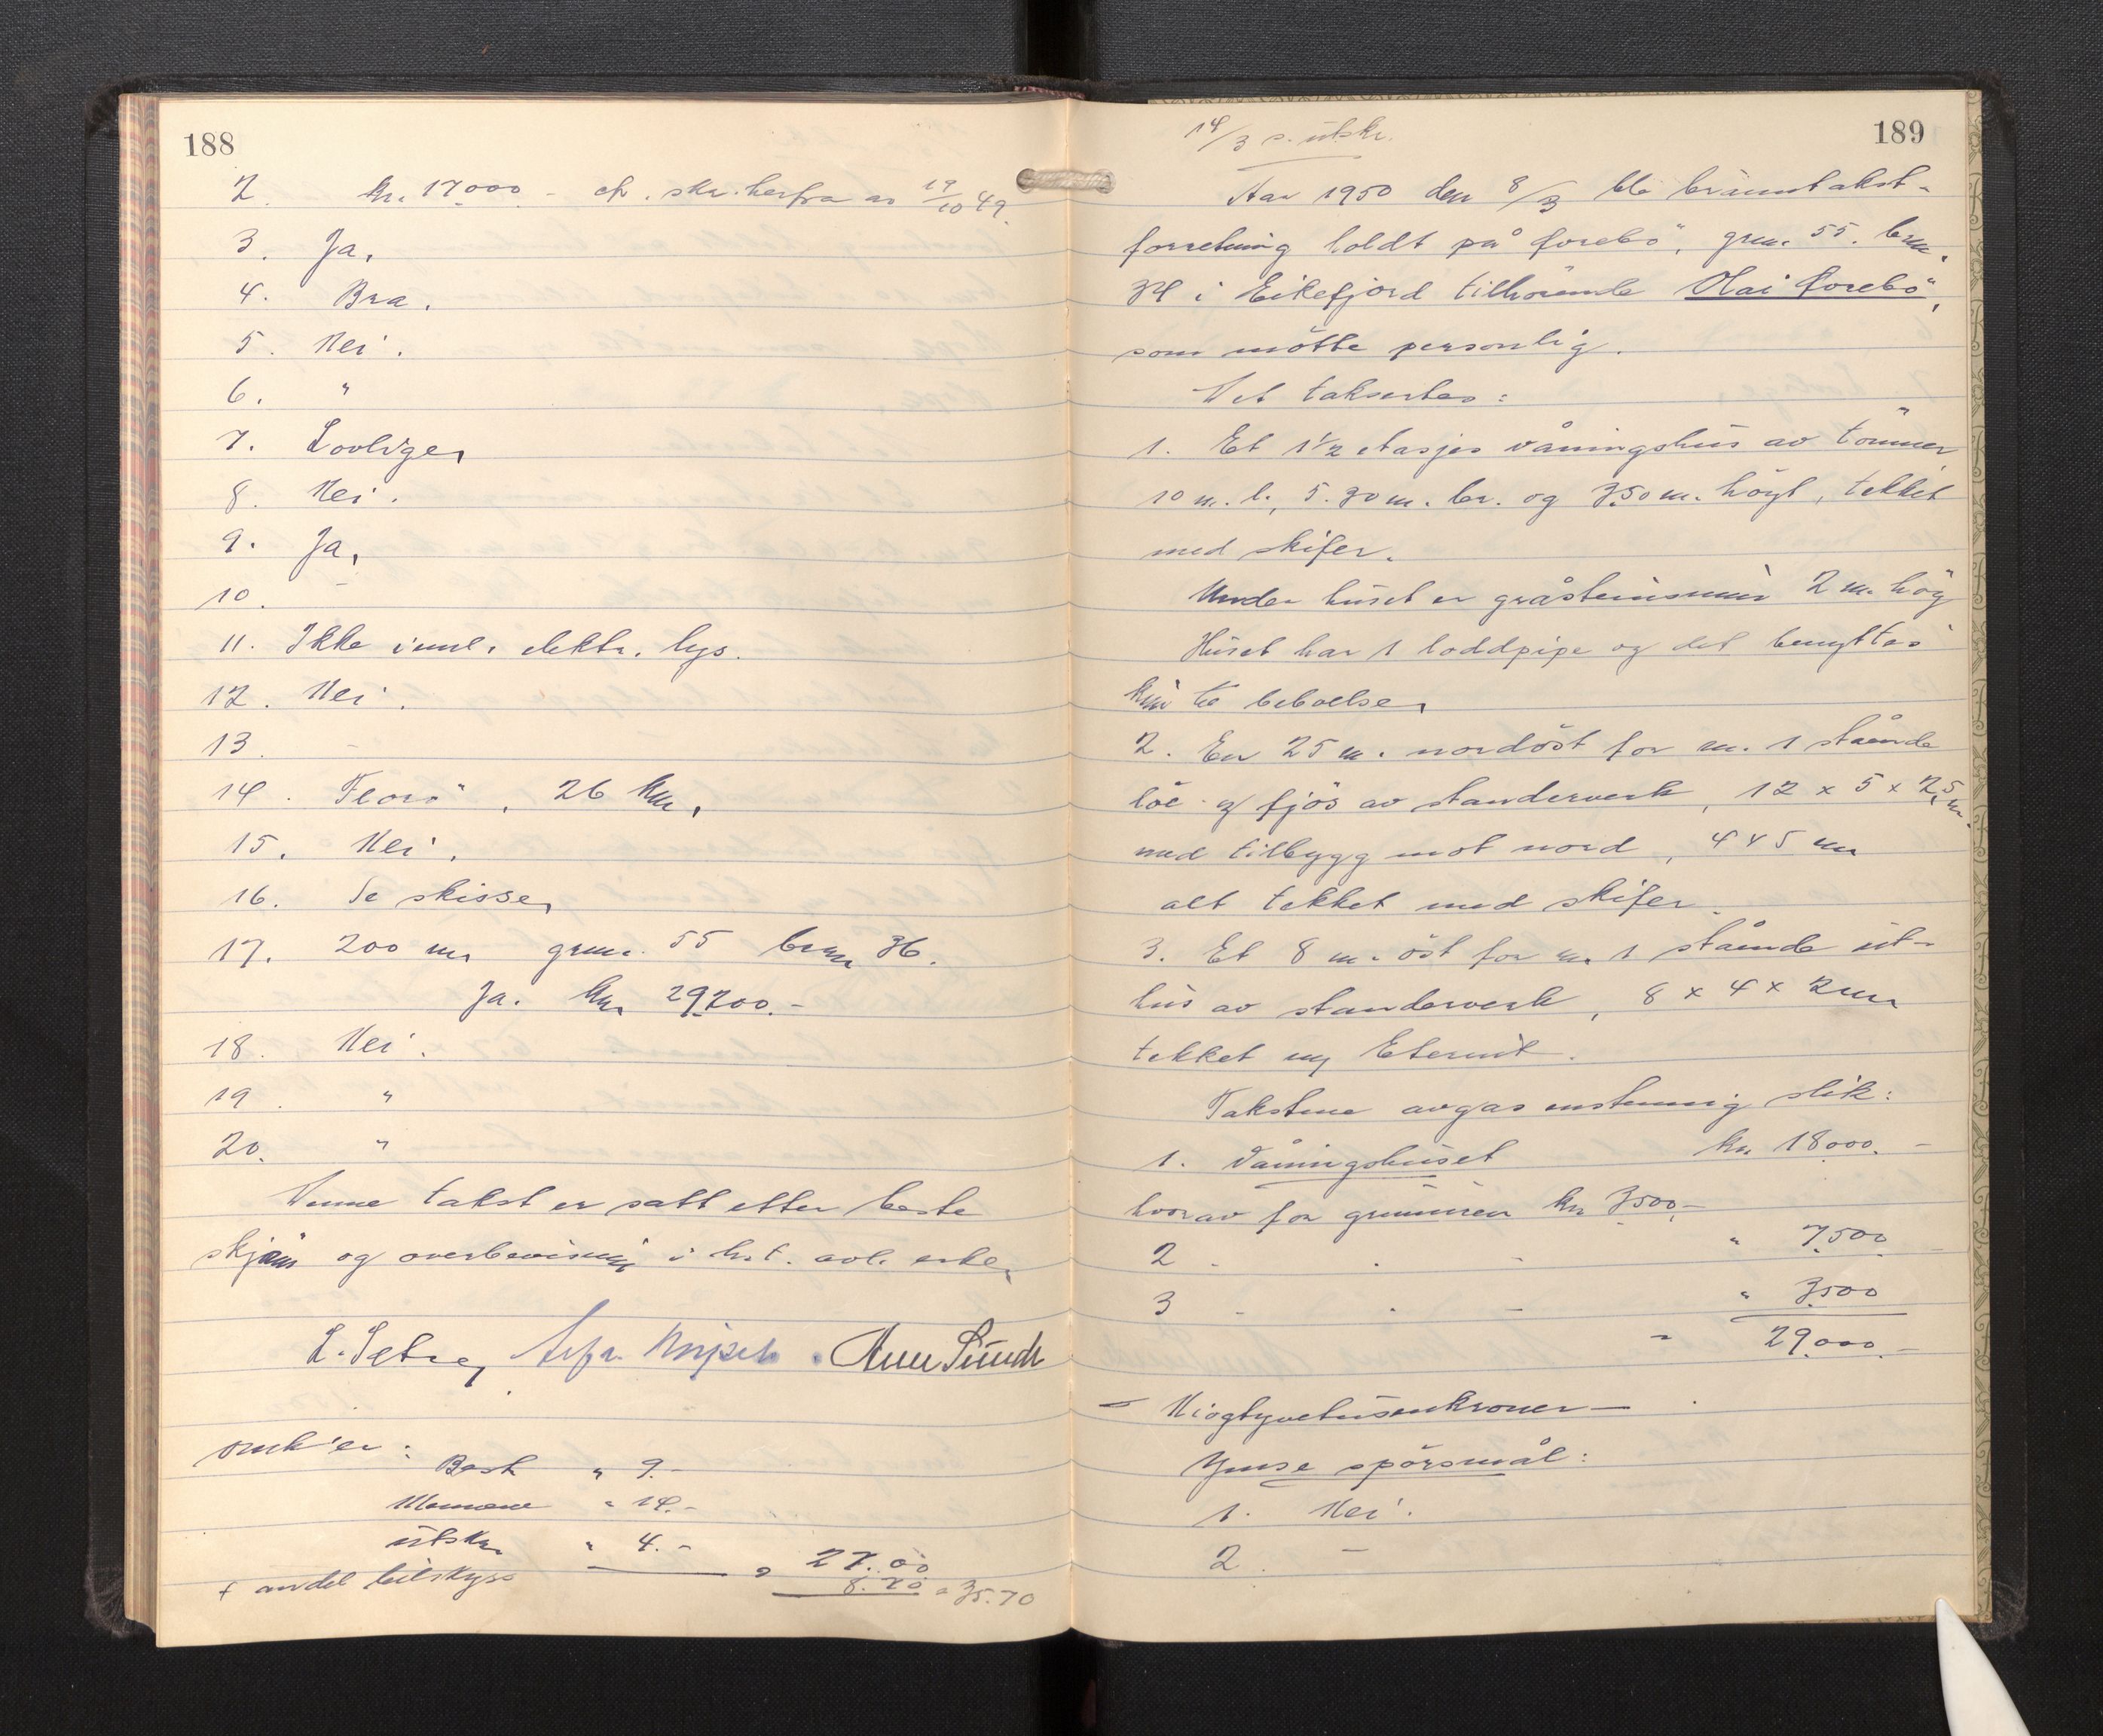 188
2. kr. 17000.- cfr. skr. herfra av 19/10 49.
3. Ja.
4. Bra.
5. Nei.
6. "
7. Lovlige.
8. Nei.
9. Ja.
10. -
11. Ikke innl. elektr. lys.
12. Nei.
13. -
14. Florö, 26 km.
15. Nei.
16. Se skisse.
17. 200 m. gnr. 55 brnr. 36.
Ja. kr. 29200.-
18. Nei.
19. "
20. "
Denne takst er satt etter beste
skjönn og overbevisning i h.t. avl. ed.
L. Setre,
omk'er:
Best " 9.-
Mennene " 14.-
utskr. " 4.- = 27.00
+ andel bilskyss 8.70 = 35.70
14/3 s. utskr.
189
Aar 1950 den 8/3 ble branntakst-
forretning holdt på Förebö, gnr. 55. brnr.
34 i Eikefjord tilhörende Nai Förebö,
som mötte personlig.
Det taksertes:
1. Et 1 1/2 etasjes våningshus av tömmer
10 m. l., 5.30 m. br. og 3.50 m. höyt, tekket
med skifer.
Under huset er gråsteinsmur 2 m. höy
Huset har 1 loddpipe og det benyttes
kun til beboelse.
2. En 25 m. nordöst for nr. 1 stående
löe og fjös av standerverk, 12 x 5 x 2,5 m.
med tilbygg mot nord, 4 x 5 m
alt tekket med skifer.
3. Et 8 m. öst for nr. 1 stående ut-
hus av standerverk, 8 x 4 x 2 m
tekket m/ Eternit.
Takstene avgas enstemmig slik:
1. Våningshuset kr. 18000.-
hvorav for grunnmur kr 3500.-
2 - - - " 7500.-
3 - - - " 3500
- 29.000.-
- Niogtyvetusenkroner -
Ymse spörsmål:
1. Nei.
2. -